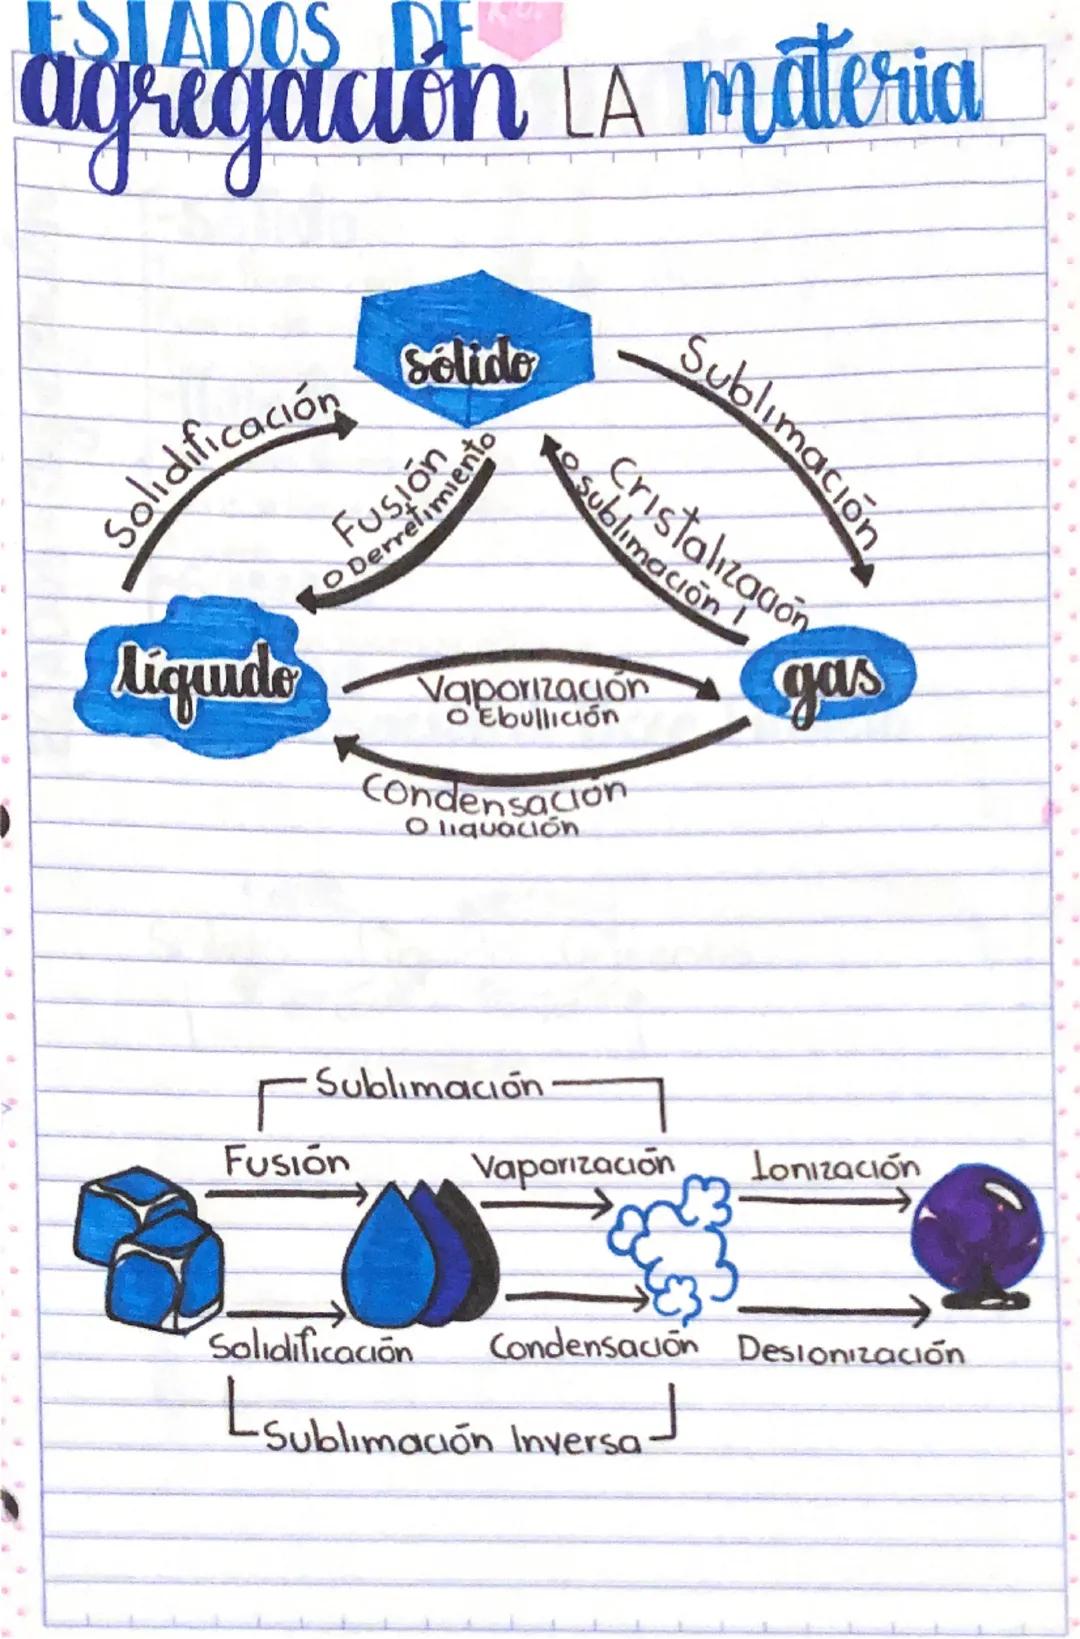 ESTADOS DE
agregación LA materia
sólido
Solidificación
Fusión
o Derretimiento
Sublimación
Cristalización
o sublimación I
líquido
gas
Vaporización
o Ebullición
Condensación
o liquación
Sublimación
Fusión
Vaporización
Ionización
Solidificación
Condensación
Desionización
Sublimación Inversa